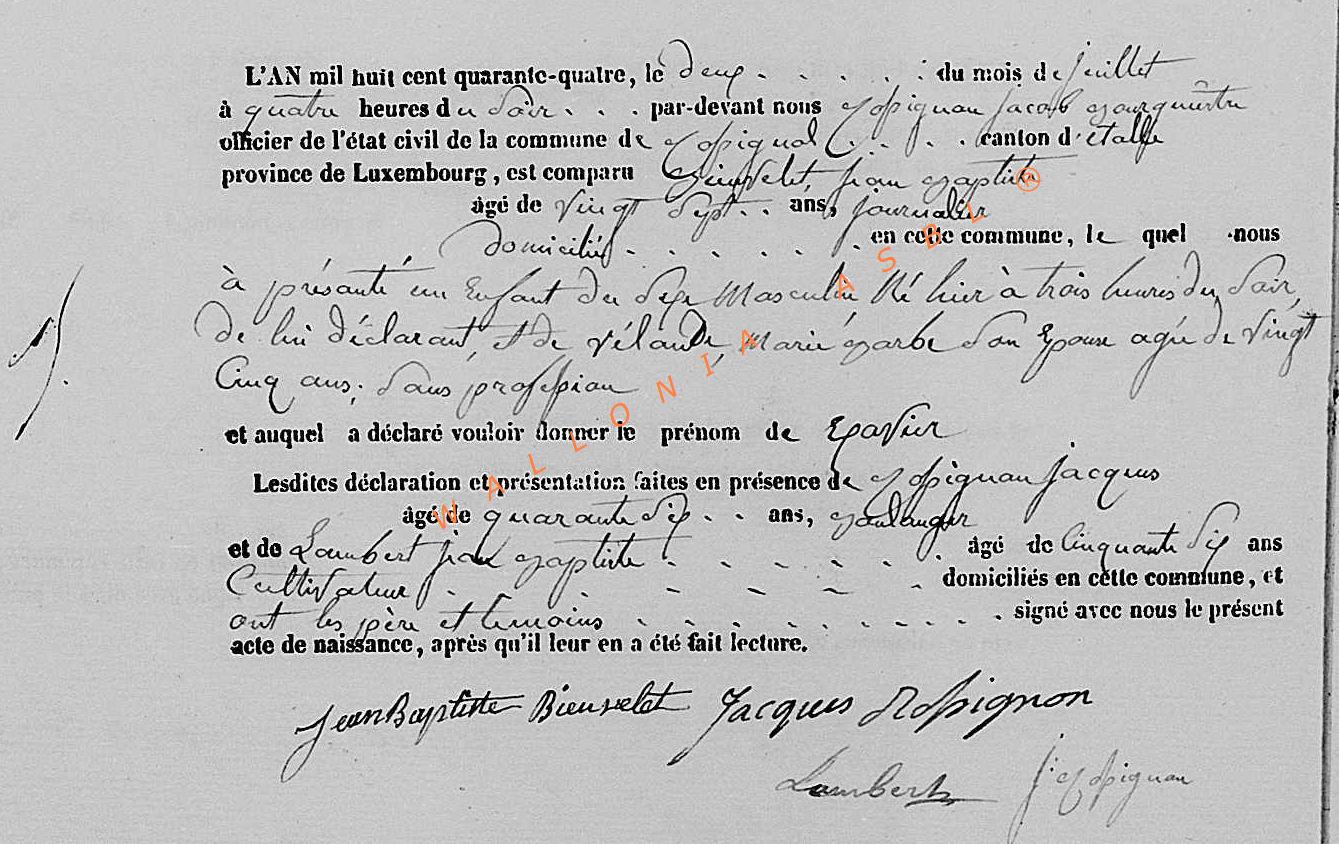 L'AN mil huit cent quarante-quatre, le deux . . . . . . du mois de juillet
à quatre heures du Soir . . . par-devant nous Rossignon Jacob Bourguêstre
officier de l'état civil de la commune de Rossignol . . . . canton d'étalle
province de Luxembourg, est comparu Bieuvelet, jean Baptiste
âgé de vingt Sept . . ans, journalier
domicilié . . . . . . en cette commune, le quel nous
à présanté un Enfant du Sexe Masculin Né hier à trois heures du Soir,
de lui déclarant, et de Vélande, Marié Barbe Son Epouse agée de vingt
Cinq ans, Sans profession
et auquel a déclaré vouloir donner le prénom de Xavier
Lesdites déclaration et présentation faites en présence de Rossignon jacques
âgé de quarante Six . . ans, Boulanger
et de Lambert jean Baptiste . . . . . . âgé de Cinquante Six ans
Cultivateur . . . . . . domiciliés en cette commune, et
ont les père et temoins . . . . . . . . . signé avec nous le présent
acte de naissance, après qu'il leur en a été fait lecture.
Jean Baptiste Bieuvelet Jacques Rossignon
Lambert j. Rossignon
WALLONIA ASBL ®